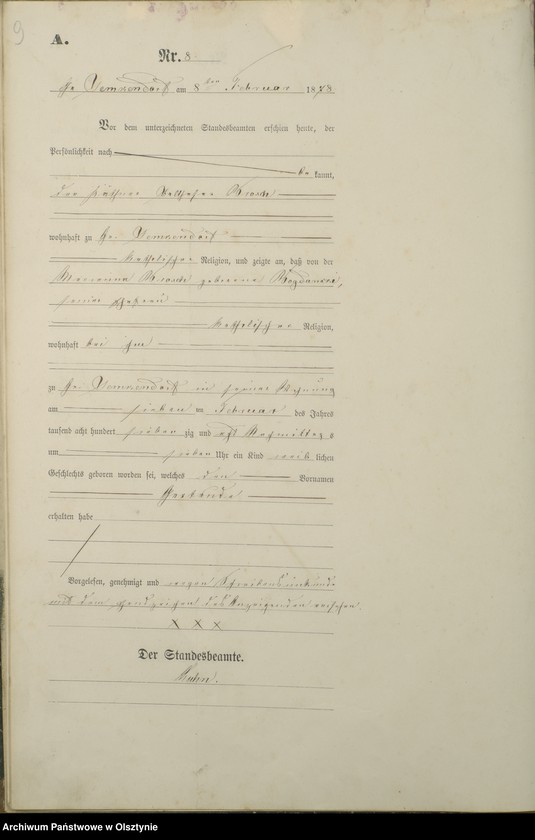 9
A.
Nr. 8
Gr. am 8 ten Februar 1878
Vor dem unterzeichneten Standesbeamten erschien heute, der
Persönlichkeit nach
be kannt,
der Käthner
wohnhaft zu Gr.
katholischer Religion, und zeigte an, daß von der
geborene
seiner Ehefrau
katholischer Religion,
wohnhaft bei ihm
zu Gr. in seiner Wohnung
am sieben ten Februar des Jahres
tausend acht hundert sieben zig und acht Nachmittags
um sieben Uhr ein Kind weib lichen
Geschlechts geboren worden sei, welches den Vornamen
erhalten habe
Vorgelesen, genehmigt und wegen Schreibensunkunde
mit dem Handzeichen des Anzeigenden versehen.
X X X
Der Standesbeamte.
Archiwum Państwowe w Olsztynie